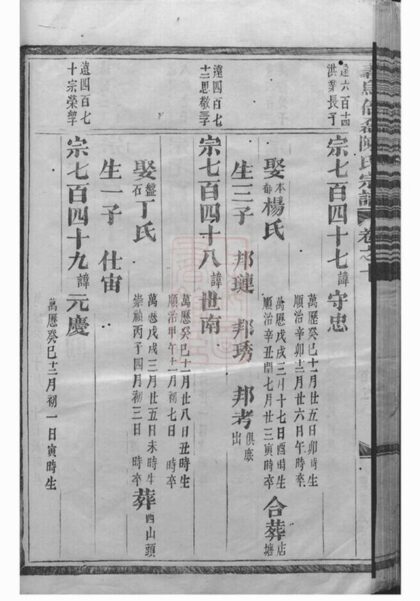 遠六百十四
洪業長子
宗七百四十七諱守忠
萬曆癸巳十一月廿五日卯時生
順治辛卯十二月廿六日午時卒
娶本都楊氏
萬曆戊戌三月十七日酉時生
順治辛丑閏七月廿三寅時卒
合葬店塘
生三子 邦璉 邦琇 邦考俱廕出
遠四百七
十二思敬子
宗七百四十八諱世南
萬曆癸巳十一月廿八日丑時生
順治甲午十二月初七日
娶盤石丁氏
萬曆戊戌三月廿五日未時生
崇禎丙子四月初三日 時卒
葬西山頭
生一子 仕宙
遠四百七
十宗榮子
宗七百四十九諱元慶
萬曆癸巳十二月初一日寅時生